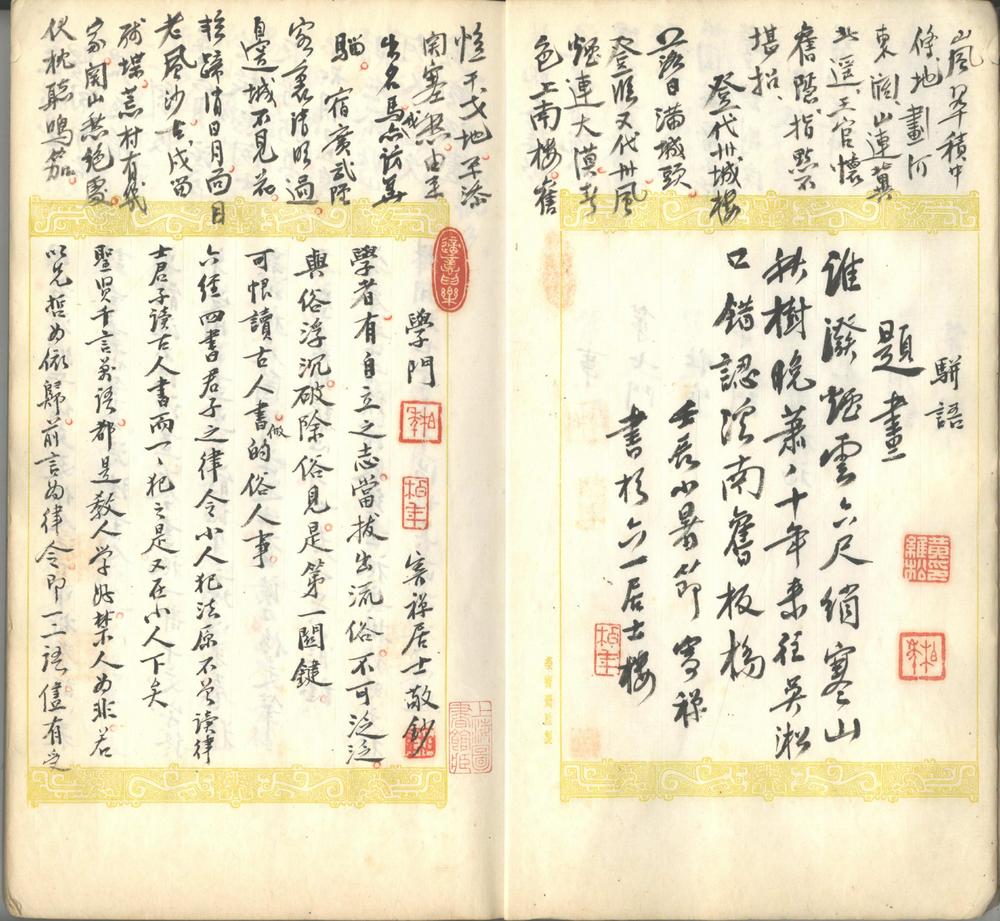 山風萃積中
條地畫河
東關山連冀
北遥王官懷
舊隱指點不
堪招
登代州城樓
落日滿城頭
登臨又代州風
煙連大漠草
色上南樓舊
駢語
題畫
誰潑煙雲六尺綃寒山
秋樹晚蕭〻十年來往吳淞
口錯認溪南舊板橋
壬辰小暑節禪
書於六一居士樓
干戈地平添
關塞愁由來
出名馬我亦訪
騮 宿廣武驛
客裏清明過
邊城不見花
輪蹄消日月面目
老風沙古戍留
殘堞荒村有幾
家關山愁絕處
伏枕聽鳴笳
學門
禪居士敬鈔
上海圖書館藏
學者有自立之志當拔出流俗不可泛泛
與俗浮沉破除俗見是第一關鍵
可恨讀古人書做的俗人事
六經四書君子之律令小人犯法原不曾讀律
士君子讀古人書而一〻犯之是又在小人下矣
聖賢千言萬語都是教人学好禁人為非若
以先哲為依歸前言為律令即一二語儘有受